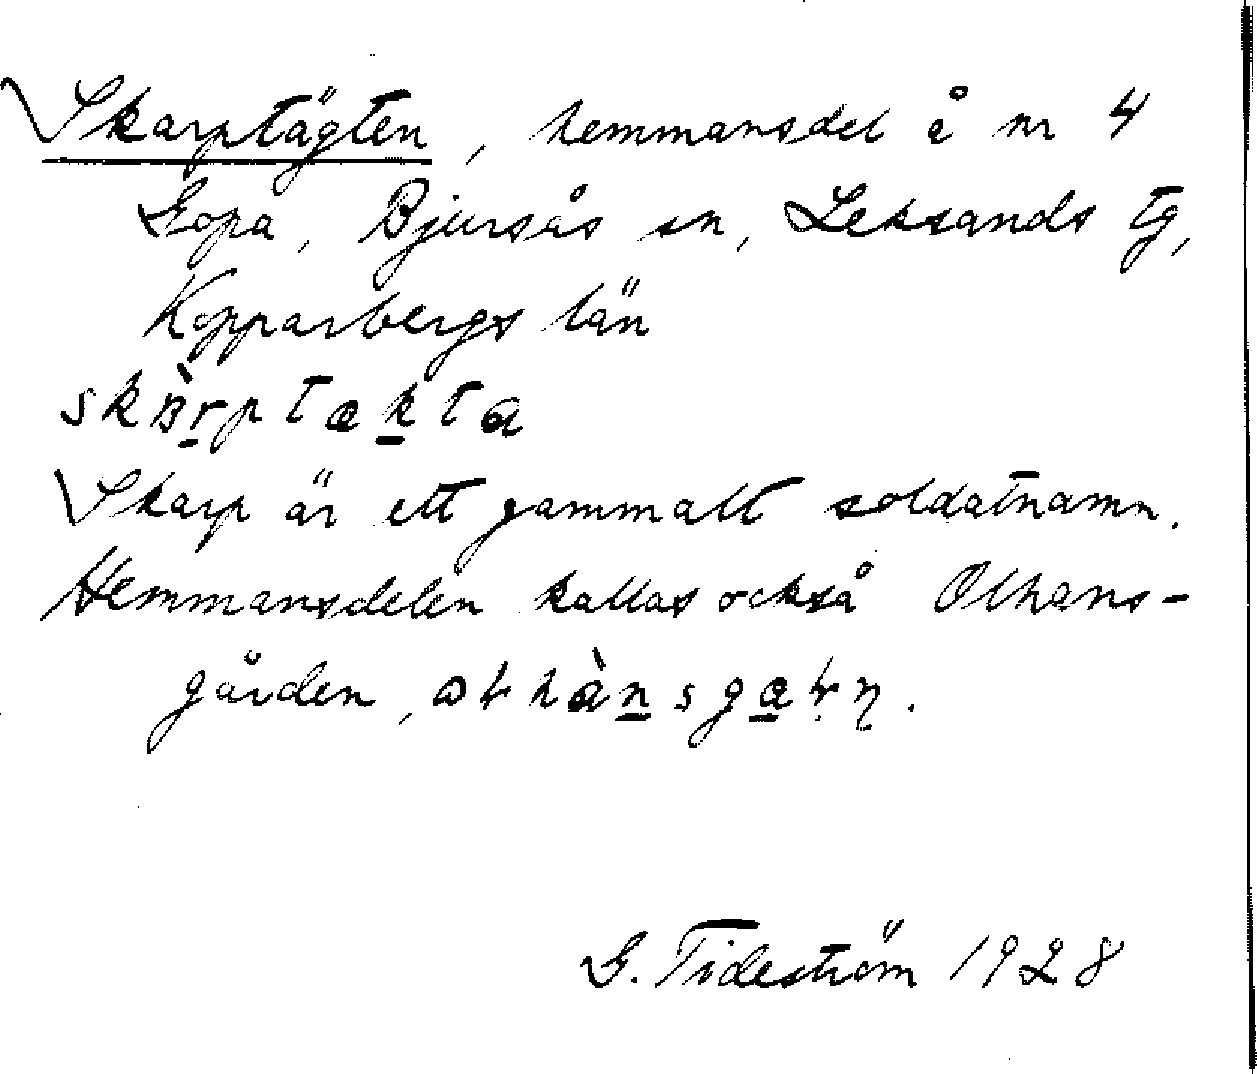 Skarptägten, hemmansdel å nr 4
Gopa, Bjursås sn, Leksands tg,
Kopparbergs län
Skarp är ett gammalt soldatnamn.
Hemmansdelen kallas också Olhans-
gården,
G. Tideström 1928